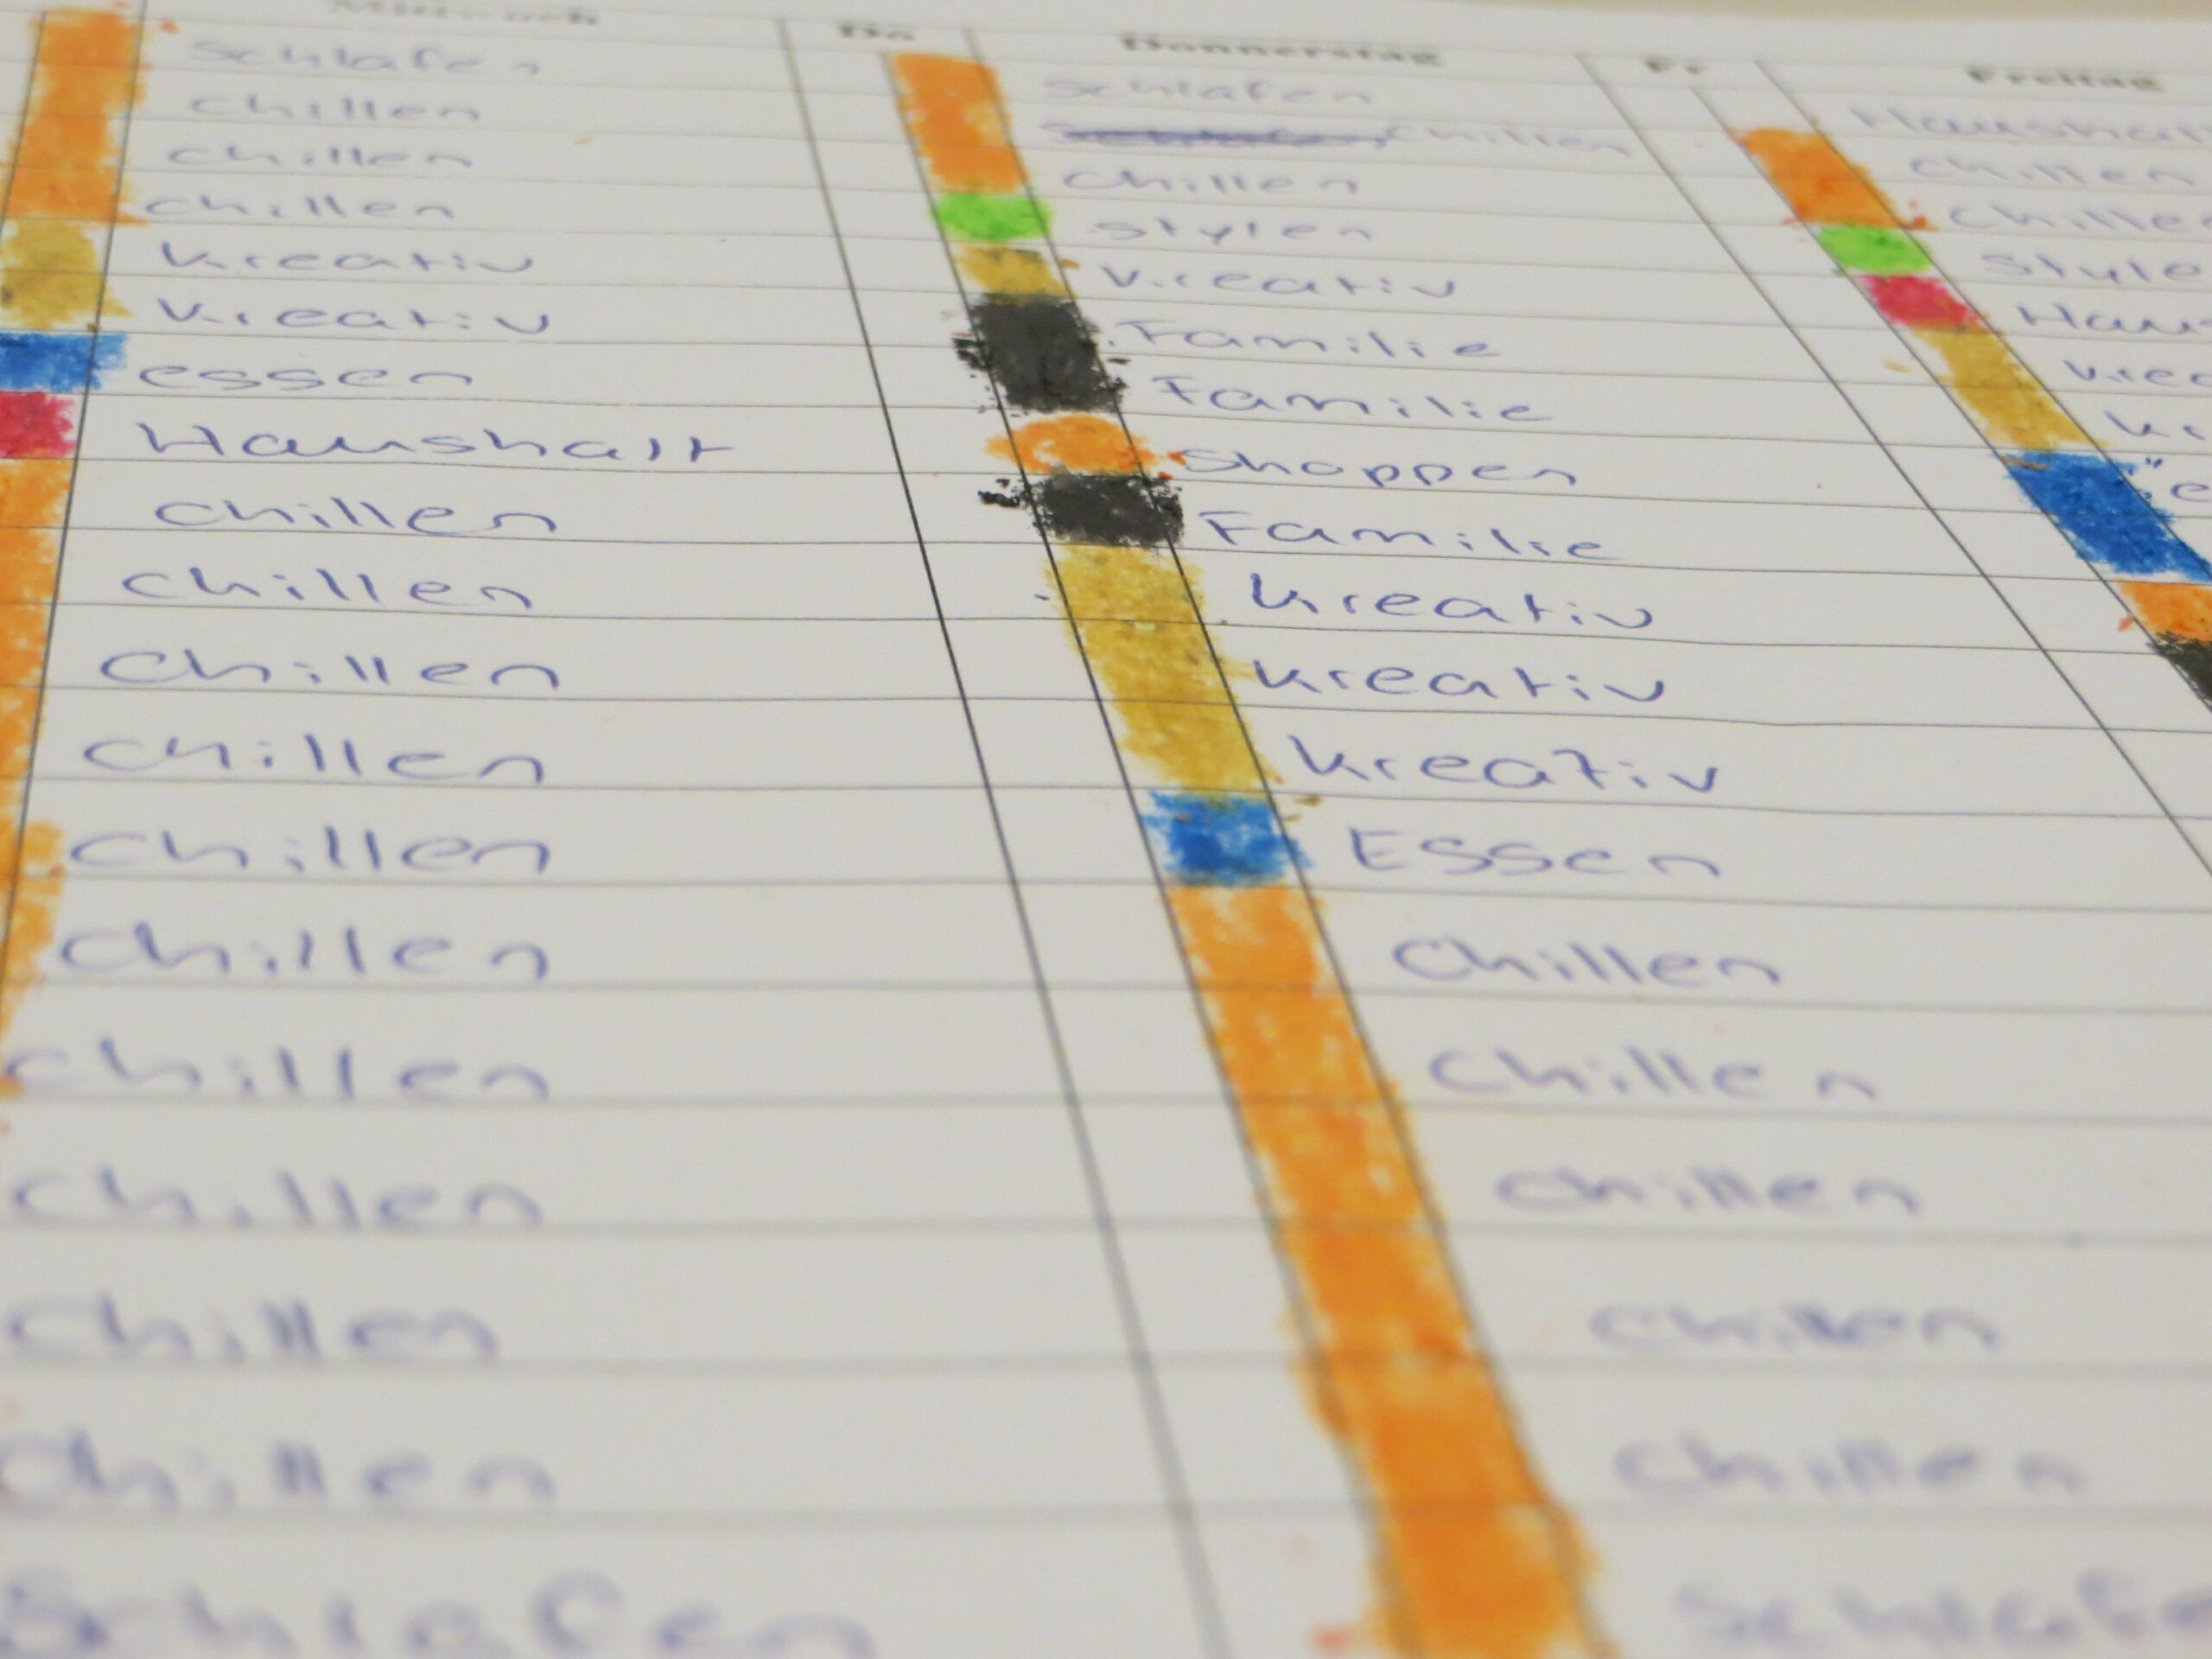 Mittwoch
Schlafen
chillen
chillen
chillen
kreativ
kreativ
essen
Haushalt
chillen
chillen
chillen
chillen
chillen
chillen
chillen
chillen
chillen
chillen
Schlafen
Do
Donnerstag
Schlafen
chillen
chillen
stylen
kreativ
Familie
Familie
Shoppen
Familie
kreativ
kreativ
kreativ
Essen
chillen
chillen
chillen
chillen
chillen
Schlafe
Fr
Freitag
Haushal
chillen
chille
style
Hau
krea